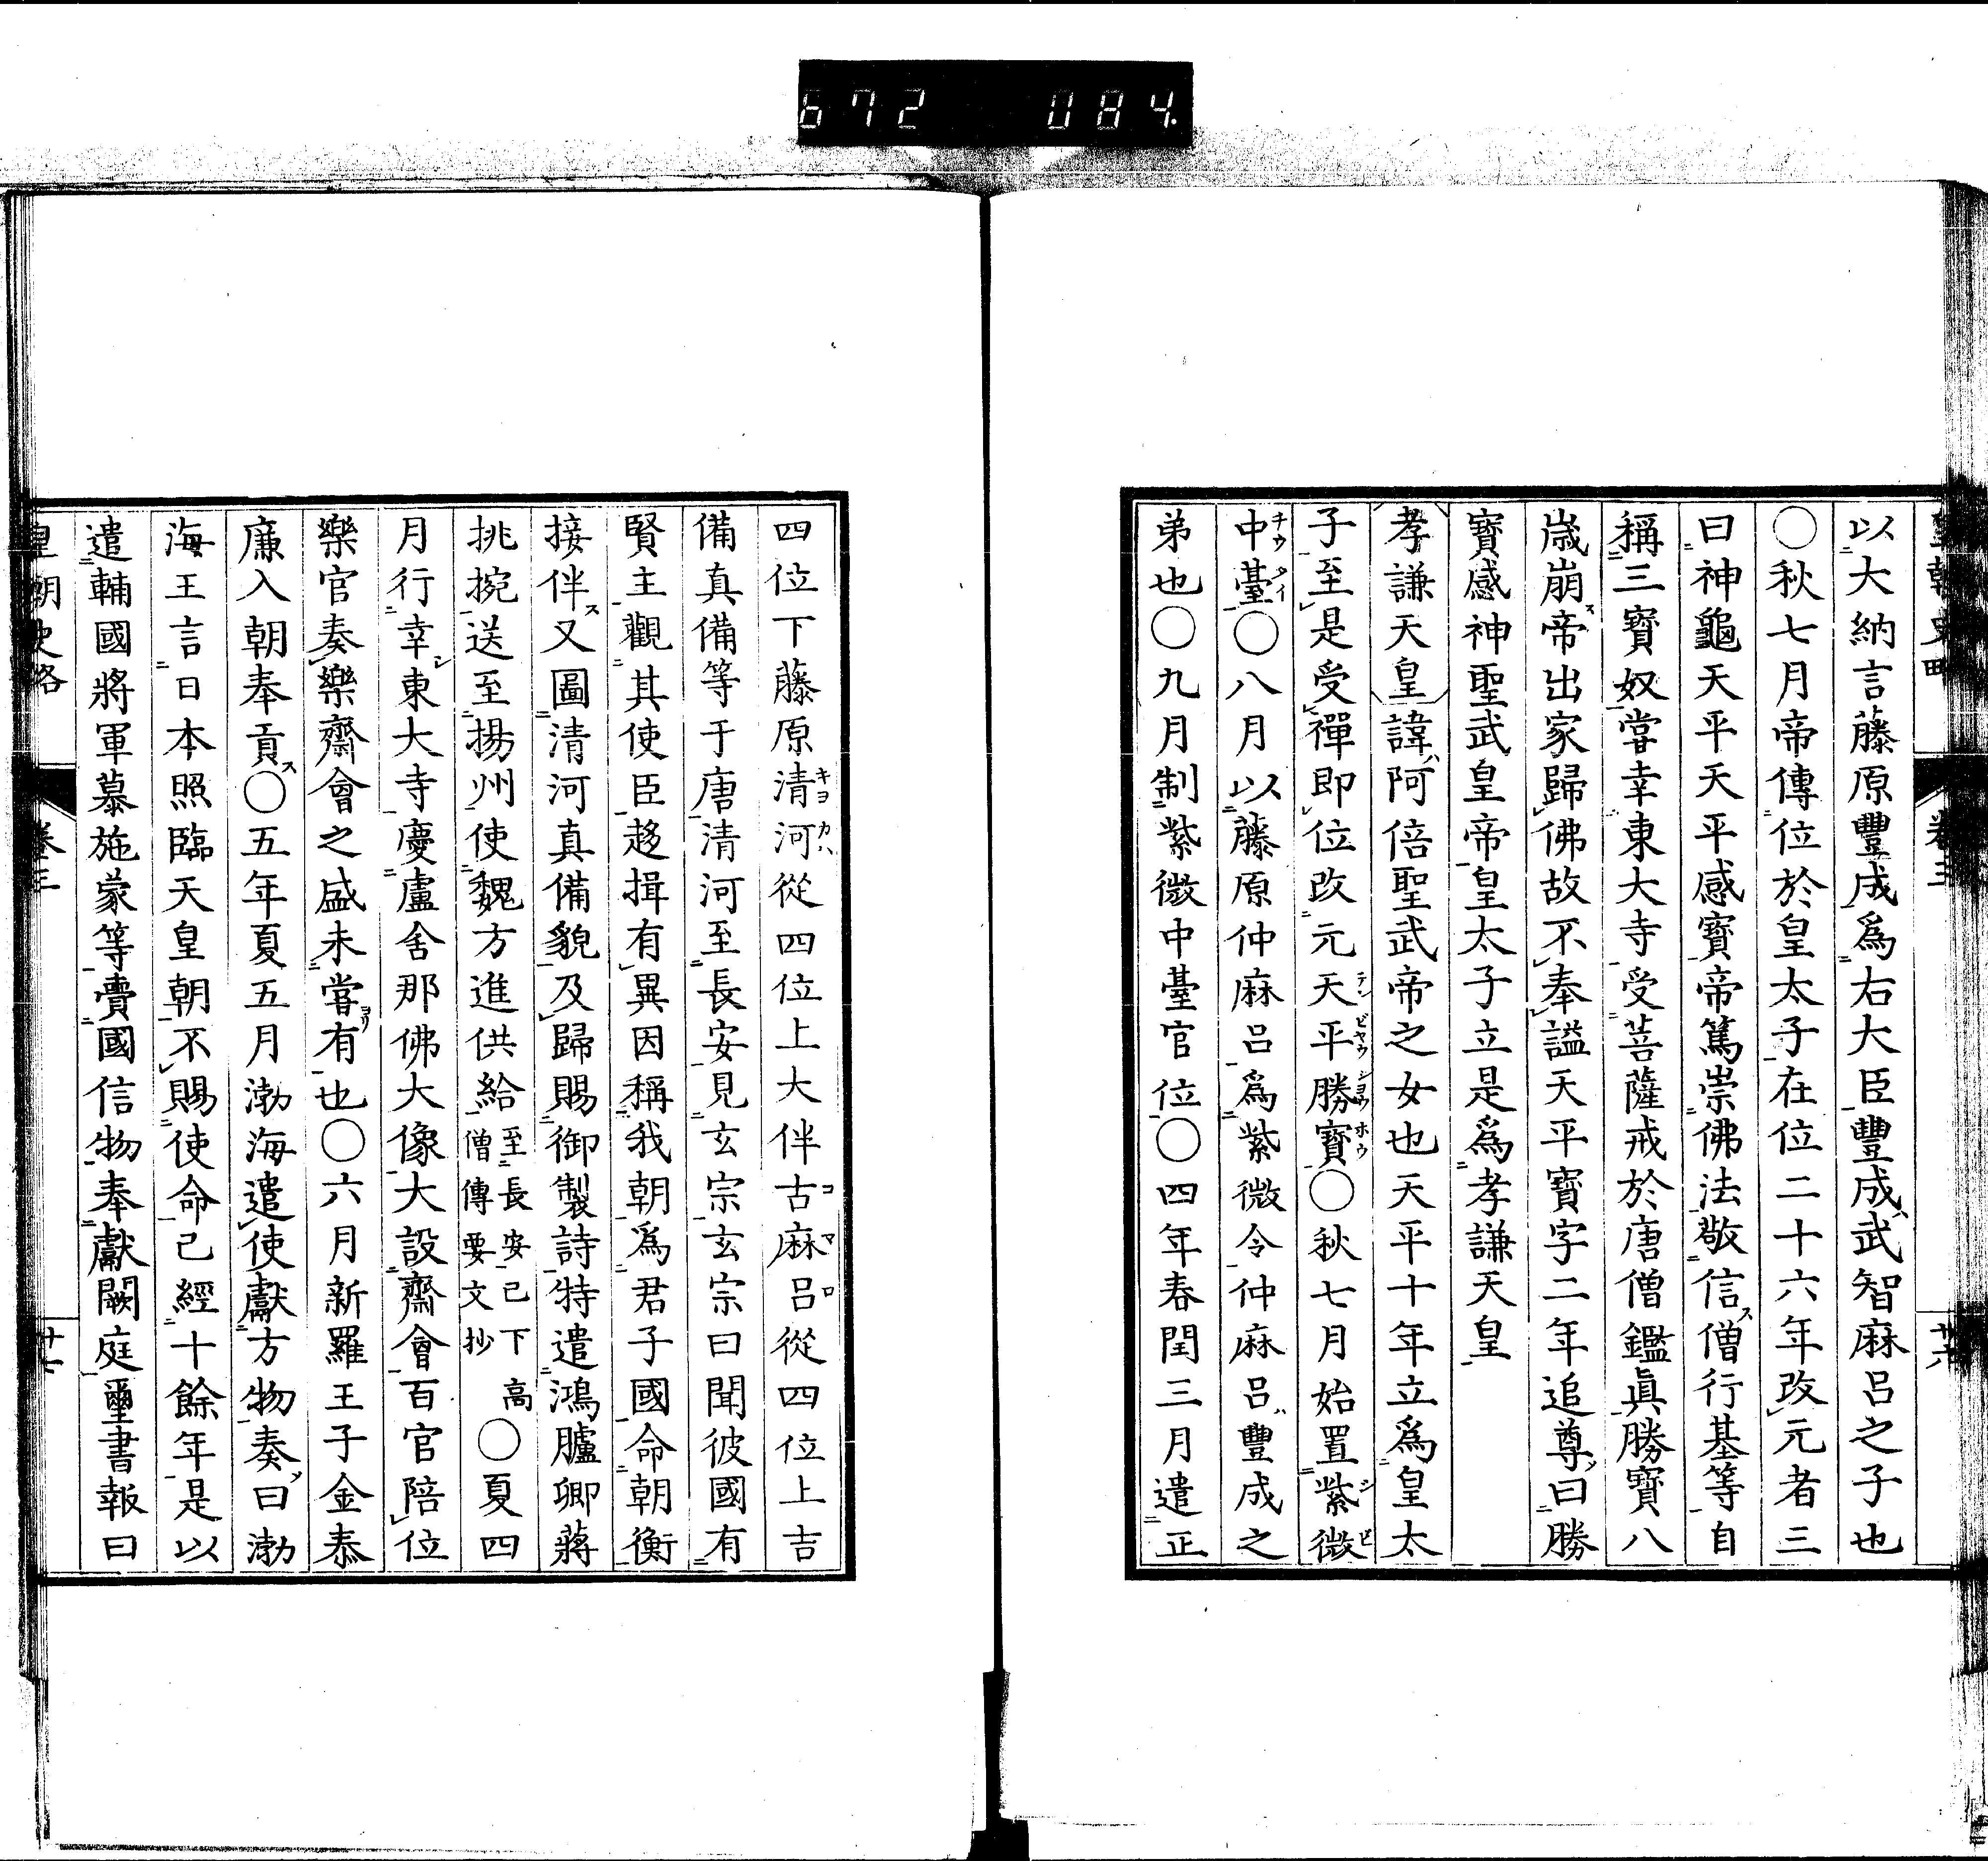 672 084
皇朝史略 卷三 廿六
以大納言藤原豐成爲右大臣豐成武智麻呂之子也
〇秋七月帝傳位於皇太子在位二十六年改元者三
曰神龜天平天平感寶帝篤崇佛法敬信僧行基等自
稱三寶奴嘗幸東大寺受菩薩戒於唐僧鑑眞勝寶八
歲崩帝出家歸佛故不奉謚天平寶字二年追尊曰勝
寶感神聖武皇帝皇太子立是爲孝謙天皇
孝謙天皇諱阿倍聖武帝之女也天平十年立爲皇太
子至是受禪即位改元天平勝寶〇秋七月始置紫微
中臺〇八月以藤原仲麻呂爲紫微令仲麻呂豐成之
弟也〇九月制紫微中臺官位〇四年春閏三月遣正
四位下藤原清河從四位上大伴古麻呂從四位上吉
備真備等于唐清河至長安見玄宗玄宗曰聞彼國有
賢主觀其使臣趍揖有異因稱我朝爲君子國命朝衡
接伴又圖清河真備貌及歸賜御製詩特遣鴻臚卿蔣
挑捥送至揚州使魏方進供給至長安已下高僧傳要文抄〇夏四
月行幸東大寺慶盧舍那佛大像大設齋會百官陪位
樂官奏樂齋會之盛未嘗有也〇六月新羅王子金泰
廉入朝奉貢〇五年夏五月渤海遣使獻方物奏曰渤
海王言日本照臨天皇朝不賜使命已經十餘年是以
遣輔國將軍慕施蒙等賷國信物奉獻闕庭璽書報曰
皇朝史略 卷三 廿七